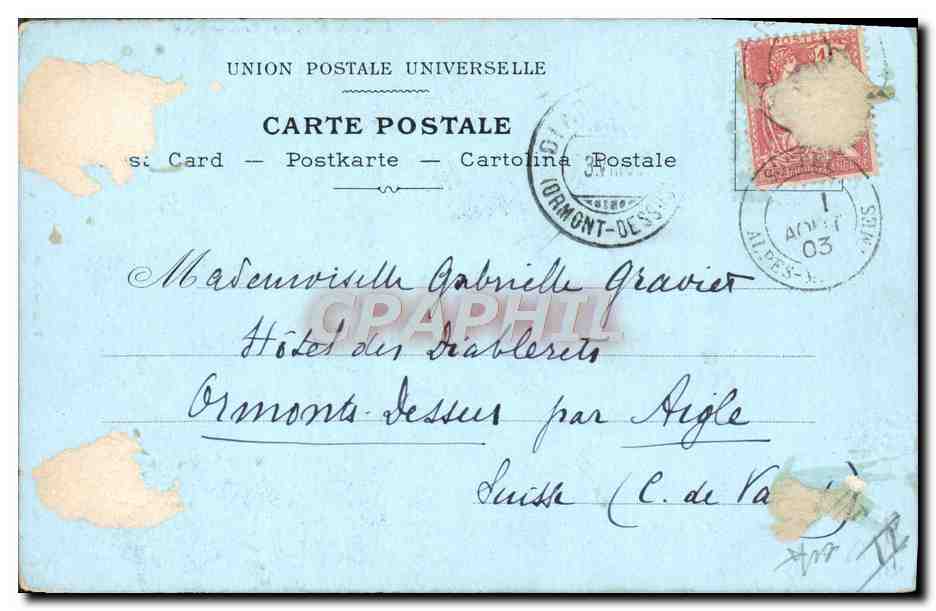 UNION POSTALE UNIVERSELLE
CARTE POSTALE
st Card — Postkarte — Cartolina Postale
(ORMONT-DESS
1
AOUT
03
ALPES-M MES
Mademoiselle Gabrielle Graviet
GRAPHIL
Hôtel des Diablerets
Ormonts-Dessus par Aigle
Suisse (C. de Va )